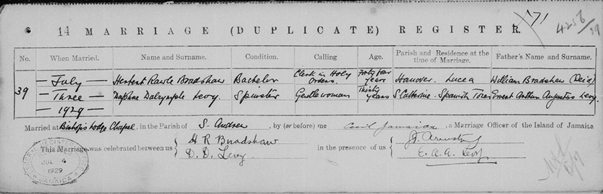 14 MARRIAGE (DUPLICATE) REGISTER.
No. When Married. Name and Surname. Condition. Calling Age. Parish and Residence at the time of Marriage. Father's Name and Surname.
39
July Herbert Rawle Bradshaw Bachelor Clerk in Holy Orders Forty four years Hanover Lucea William Bradshaw
Three Daphne Dalrymple Levy Spinster Gentlewoman Thirty years S Catherine Spanish Town Ernest Arthur Augustus Levy
1929
Married at Bishop's Lodge Chapel in the Parish of S. Andrew by (or before) me a Marriage Officer of the Island of Jamaica
This Marriage was celebrated between us H R Bradshaw in the presence of us
D. D. Levy E. A. A. Levy
1929